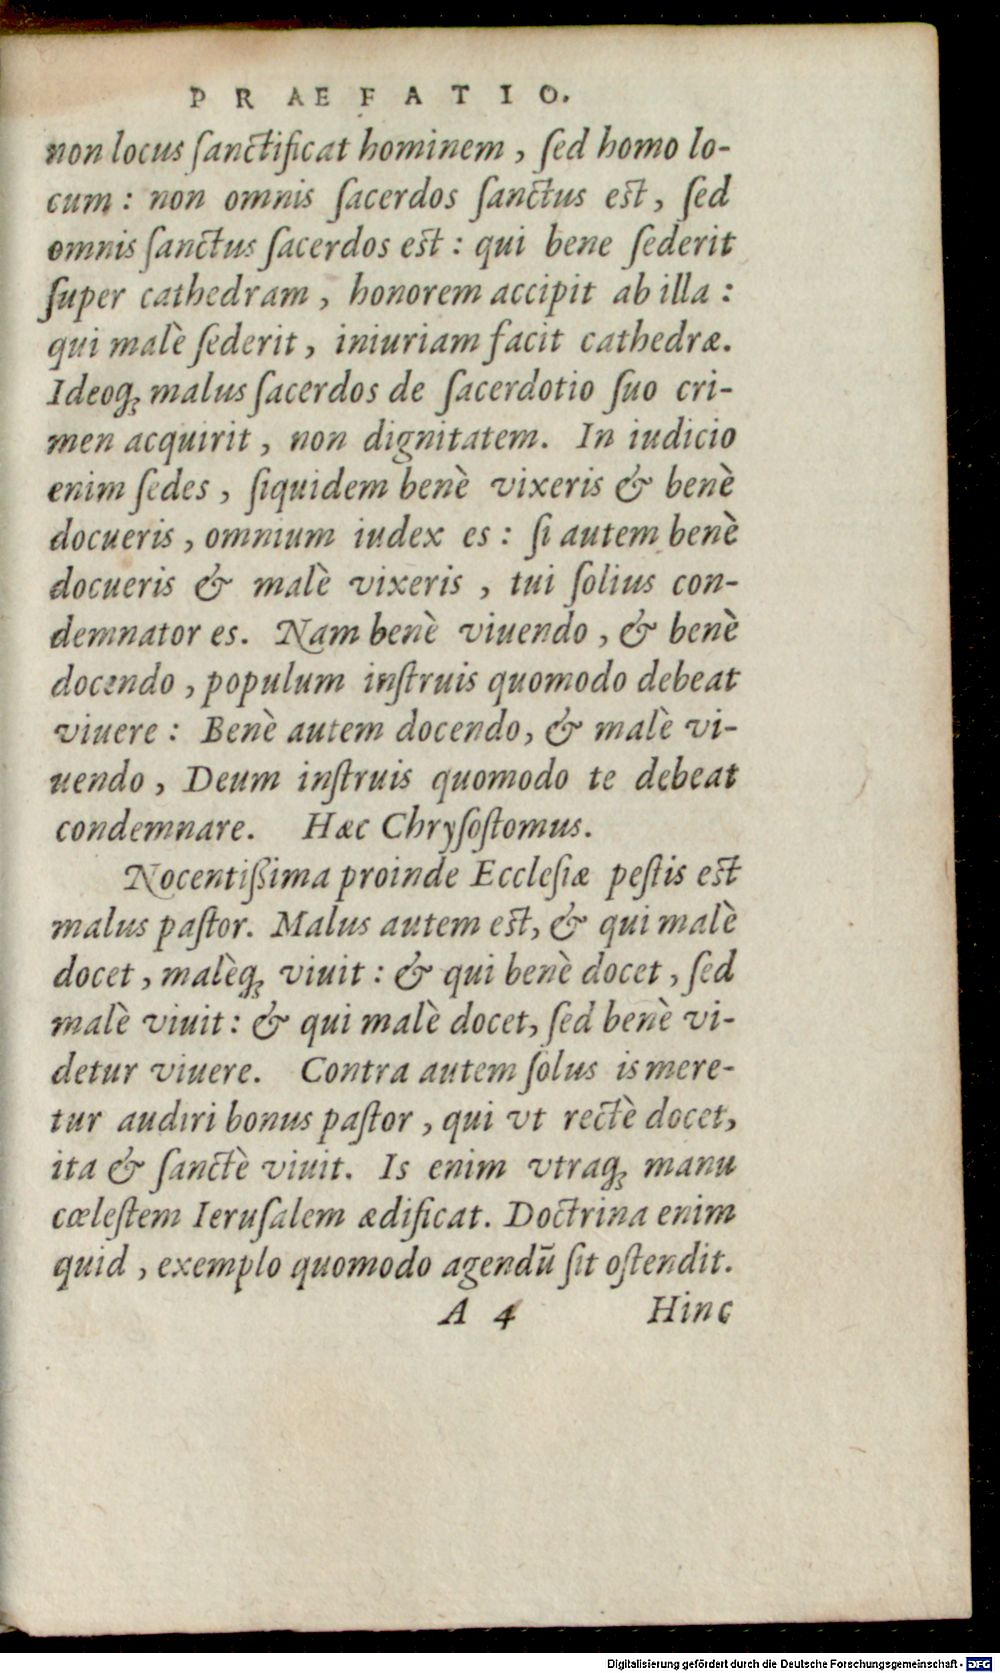 PRAEFATIO.
non locus ſanctificat hominem, ſed homo lo-
cum: non omnis ſacerdos ſanctus est, ſed
omnis ſanctus ſacerdos est: qui bene ſederit
ſuper cathedram, honorem accipit ab illa:
qui malè ſederit, iniuriam facit cathedræ.
Ideoq; malus ſacerdos de ſacerdotio ſuo cri-
men acquirit, non dignitatem. In iudicio
enim ſedes, ſiquidem benè vixeris & benè
docueris, omnium iudex es: ſi autem benè
docueris & malè vixeris, tui ſolius con-
demnator es. Nam benè viuendo, & benè
docendo, populum inſtruis quomodo debeat
viuere: Benè autem docendo, & malè vi-
uendo, Deum inſtruis quomodo te debeat
condemnare. Hæc Chryſoſtomus.
Nocentißima proinde Eccleſiæ peſtis est
malus paſtor. Malus autem est, & qui malè
docet, malèq; viuit: & qui benè docet, ſed
malè viuit: & qui malè docet, ſed benè vi-
detur viuere. Contra autem ſolus is mere-
tur audiri bonus paſtor, qui vt rectè docet,
ita & ſanctè viuit. Is enim vtraq; manu
cœleſtem Ieruſalem ædificat. Doctrina enim
quid, exemplo quomodo agendū ſit oſtendit.
A 4 Hinc
Digitalisierung gefördert durch die Deutsche Forschungsgemeinschaft - DFG